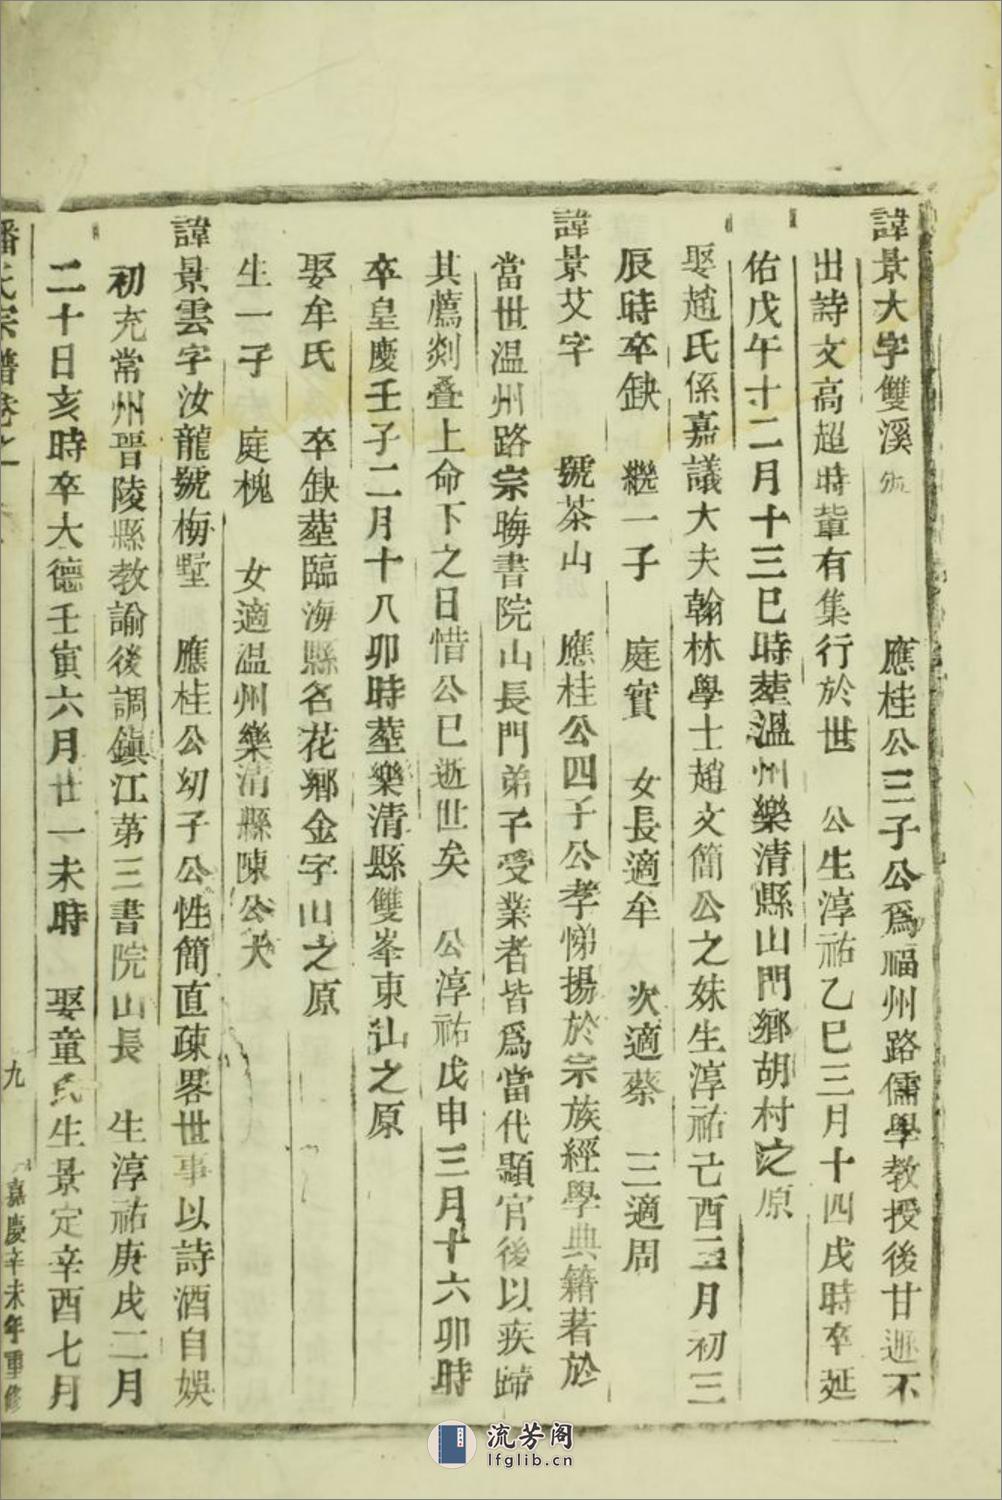 諱景大字雙溪號　應桂公三子公爲福州路儒學教授後甘遯不
出詩文高超時輩有集行於世　公生淳祐乙巳三月十四戌時卒延
佑戊午十二月十三巳時塟溫州樂清縣山門鄉胡村之原
娶趙氏係嘉議大夫翰林學士趙文簡公之妹生淳祐己酉三月初三
辰時卒缺　繼一子　庭實　女長適牟　次適蔡　三適周
諱景艾字　號茶山　應桂公四子公孝悌揚於宗族經學典籍著於
當世温州路宗晦書院山長門弟子受業者皆爲當代顯官後以疾歸
其薦剡叠上命下之日惜公已逝世矣　公淳祐戊申三月十六卯時
卒皇慶壬子二月十八卯時塟樂清縣雙峯東山之原
娶牟氏　卒缺塟臨海縣名花鄉金字山之原
生一子　庭槐　女適温州樂清縣陳公大
諱景雲字汝龍號梅墅　應桂公幼子公性簡直疎畧世事以詩酒自娛
初充常州晋陵縣教諭後調鎮江第三書院山長　生淳祐庚戌二月
二十日亥時卒大德壬寅六月廿一未時　娶童氏生景定辛酉七月
潘氏宗譜卷之一　九　嘉慶辛未年重修
流芳阁
lfglib.cn